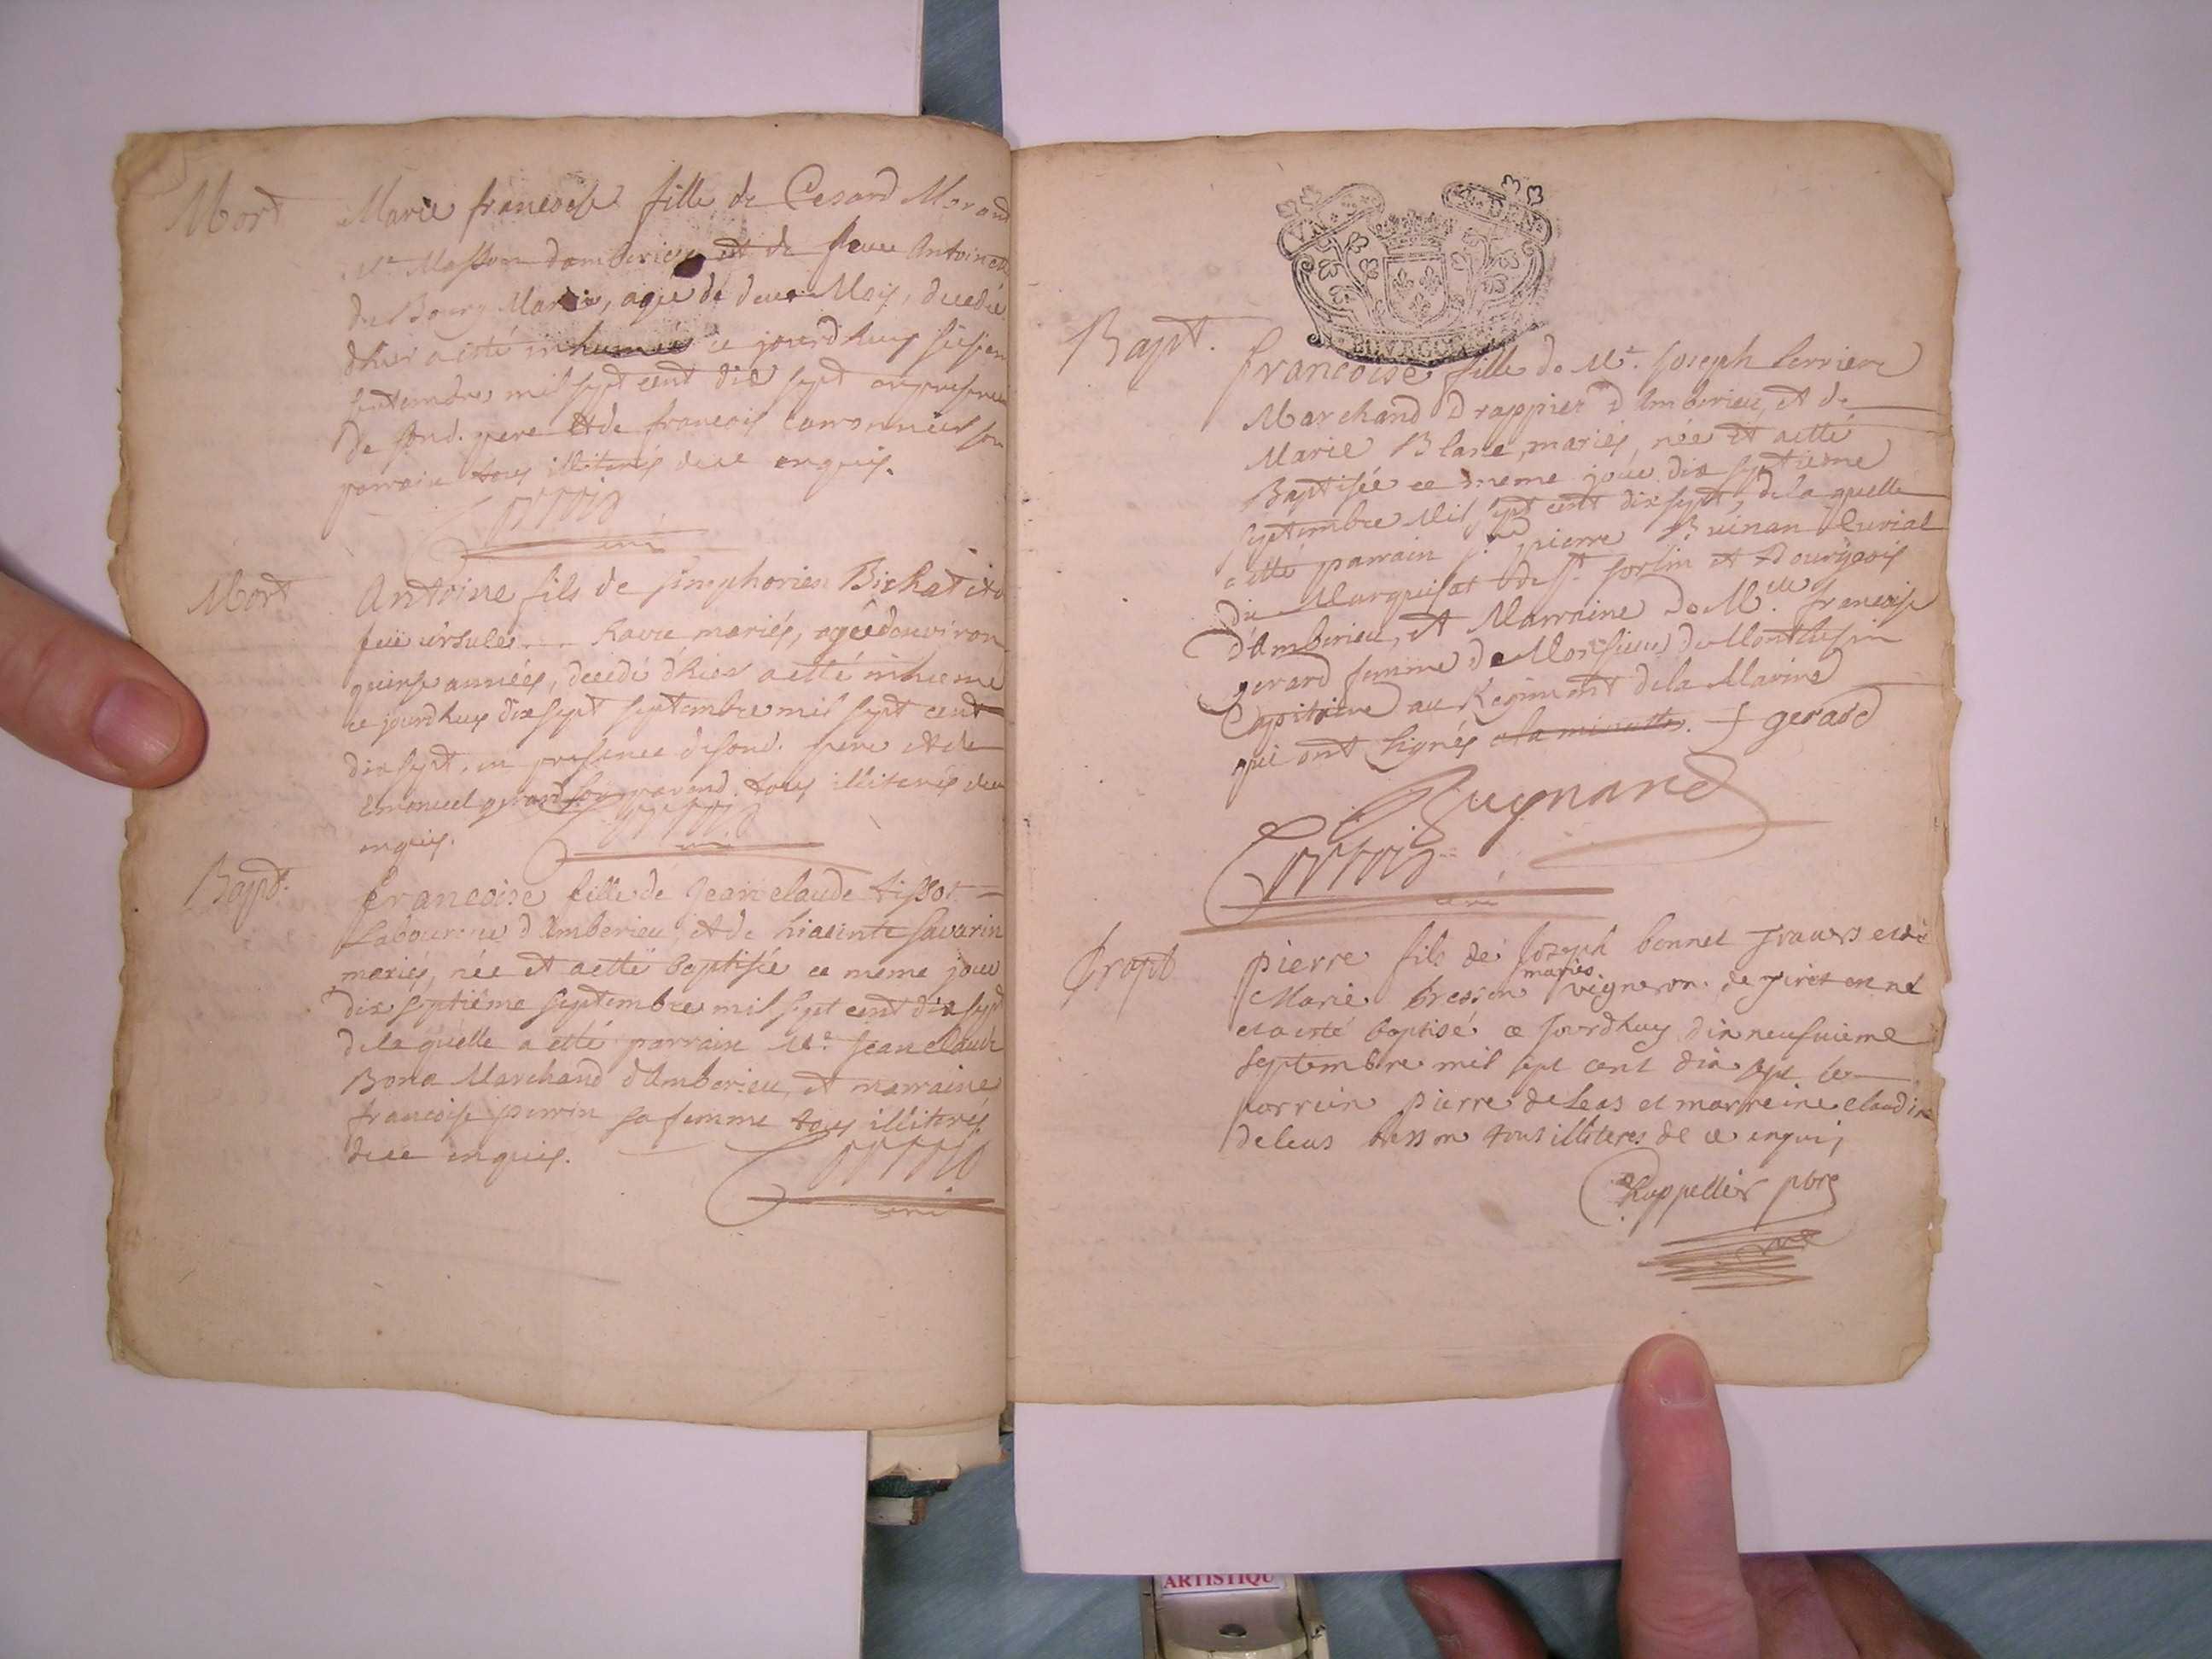 Mort
Marie francoise fille de Cesard Morand
Me Masson damberieu et de feue Antoinette
du Bourg Mariés, agée de deux Mois, decedée
dhier a esté inhumée ce jourdhuy
septembre mil sept cent dix sept en presence
de sond. pere et de francois son
parrain tous illiterés de ce enquis.
curé
Mort
Antoine fils de simphorien Bichat et de
feüe ursule Ravu mariés, agé denviron
quinse années, decedé d'hier a esté inhumé
ce jourdhuy dixsept septembre mil sept cent
dixsept, en presence de sond. pere et de
Emanuel gerard son parend. tous illiterés de ce
enquis.
curé
Bapt.
francoise fille de Jean claude tissot
Laboureur d'Amberieu, et de hiacinte savarin
mariés, née et a esté baptisée ce meme jour
dix septiéme septembre mil sept cent dix sept
de la quelle a esté parrain Me. Jean claude
Bona Marchand d'Amberieu, et marraine
francoise perrin sa femme tous illiterés
de ce enquis.
curé
Bapt.
francoise fille de Mr. Joseph
Marchand drappier d'Amberieu, et de
Marie Blanc, mariés, née et a esté
Baptisée ce meme jour dix septieme
septembre Mil sept cent dix sept, de la quelle
a esté parrain sr. pierre Curial
du Marquisat de st. sorlin et Bourgeois
d'Amberieu, et Marraine de Mlle francoise
gerard femme de Monsieur de Montlusin
Capitaine au Regiment de la Marine
qui ont signés a la minutte. f gerard
curé
Bapt
pierre fils de Joseph bonnet et de
Marie bresson mariés vigneron de est né
et a esté baptisé ce jourdhuy dix neufuieme
septembre mil sept cent dix sept le
parrein pierre deleas et marreine claudine
deleas besson tous illiteres de ce enquis
Chappellier pbre